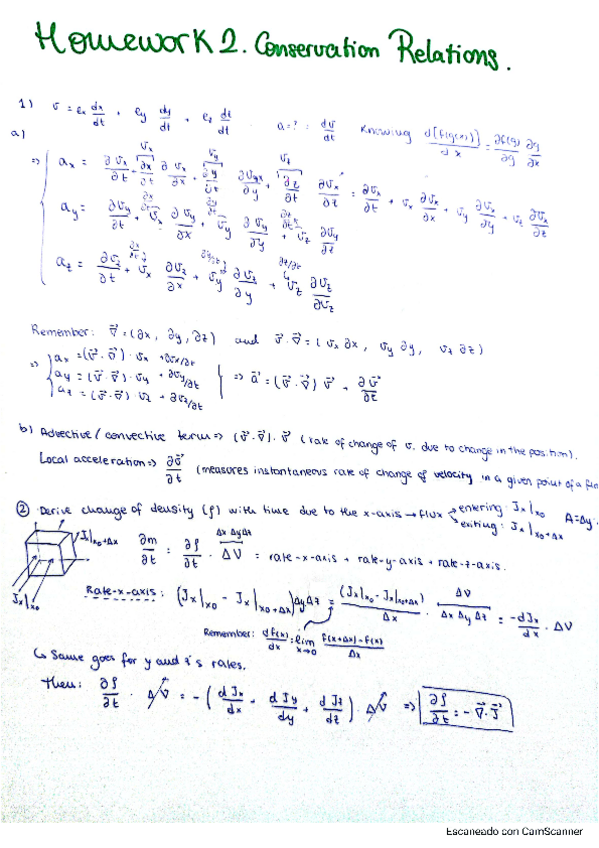 Homework 2. Conservation Relations.
1) v = eₓ dx/dt + e_y dy/dt + e_z dz/dt . a=? = dv/dt Knowing d[f(g(x))]/dx = ∂f(g)/∂g ∂g/∂x
a)
⇒ aₓ = ∂vₓ/∂t + ∂x/∂t ∂vₓ/∂x + ∂y/∂t ∂vₓ/∂y + ∂z/∂t ∂vₓ/∂z = ∂vₓ/∂t + vₓ ∂vₓ/∂x + v_y ∂vₓ/∂y + v_z ∂vₓ/∂z
a_y = ∂v_y/∂t + vₓ ∂v_y/∂x + v_y ∂v_y/∂y + v_z ∂v_y/∂z
a_z = ∂v_z/∂t + vₓ ∂v_z/∂x + v_y ∂v_z/∂y + v_z ∂v_z/∂v_z
Remember: ∇⃗ = (∂x, ∂y, ∂z) and v⃗·∇⃗ = (vₓ ∂x, v_y ∂y, v_z ∂z)
⇒ aₓ = (v⃗·∇⃗)·vₓ + ∂vₓ/∂t
a_y = (v⃗·∇⃗)·v_y + ∂v_y/∂t ⇒ a⃗ = (v⃗·∇⃗) v⃗ + ∂v⃗/∂t
a_z = (v⃗·∇⃗) v_z + ∂v_z/∂t
b) Advective/convective term ⇒ (v⃗·∇⃗)·v⃗ (rate of change of v. due to change in the position).
Local acceleration ⇒ ∂v⃗/∂t (measures instantaneous rate of change of velocity in a given point of a
② Derive change of density (ρ) with time due to the x-axis → flux entering: Jₓ|x₀ A=Δy·
exiting: Jₓ|x₀+Δx
Jₓ|x₀+Δx ∂m/∂t = ∂ρ/∂t · ΔV = rate-x-axis + rate-y-axis + rate-z-axis.
Δx Δy Δz
Jₓ|x₀
Rate-x-axis: (Jₓ|x₀ - Jₓ|x₀+Δx) Δy Δz = (Jₓ|x₀ - Jₓ|x₀+Δx)/Δx · ΔV/Δx Δy Δz = -dJₓ/dx · ΔV
Remember: df(x)/dx = lim x→0 f(x+Δx)-f(x)/Δx
↳ Same goes for y and z's rates.
Then: ∂ρ/∂t · ΔV = - (dJₓ/dx + dJ_y/dy + dJ_z/dz) · ΔV ⇒ ∂ρ/∂t = -∇⃗·J⃗
Escaneado con CamScanner